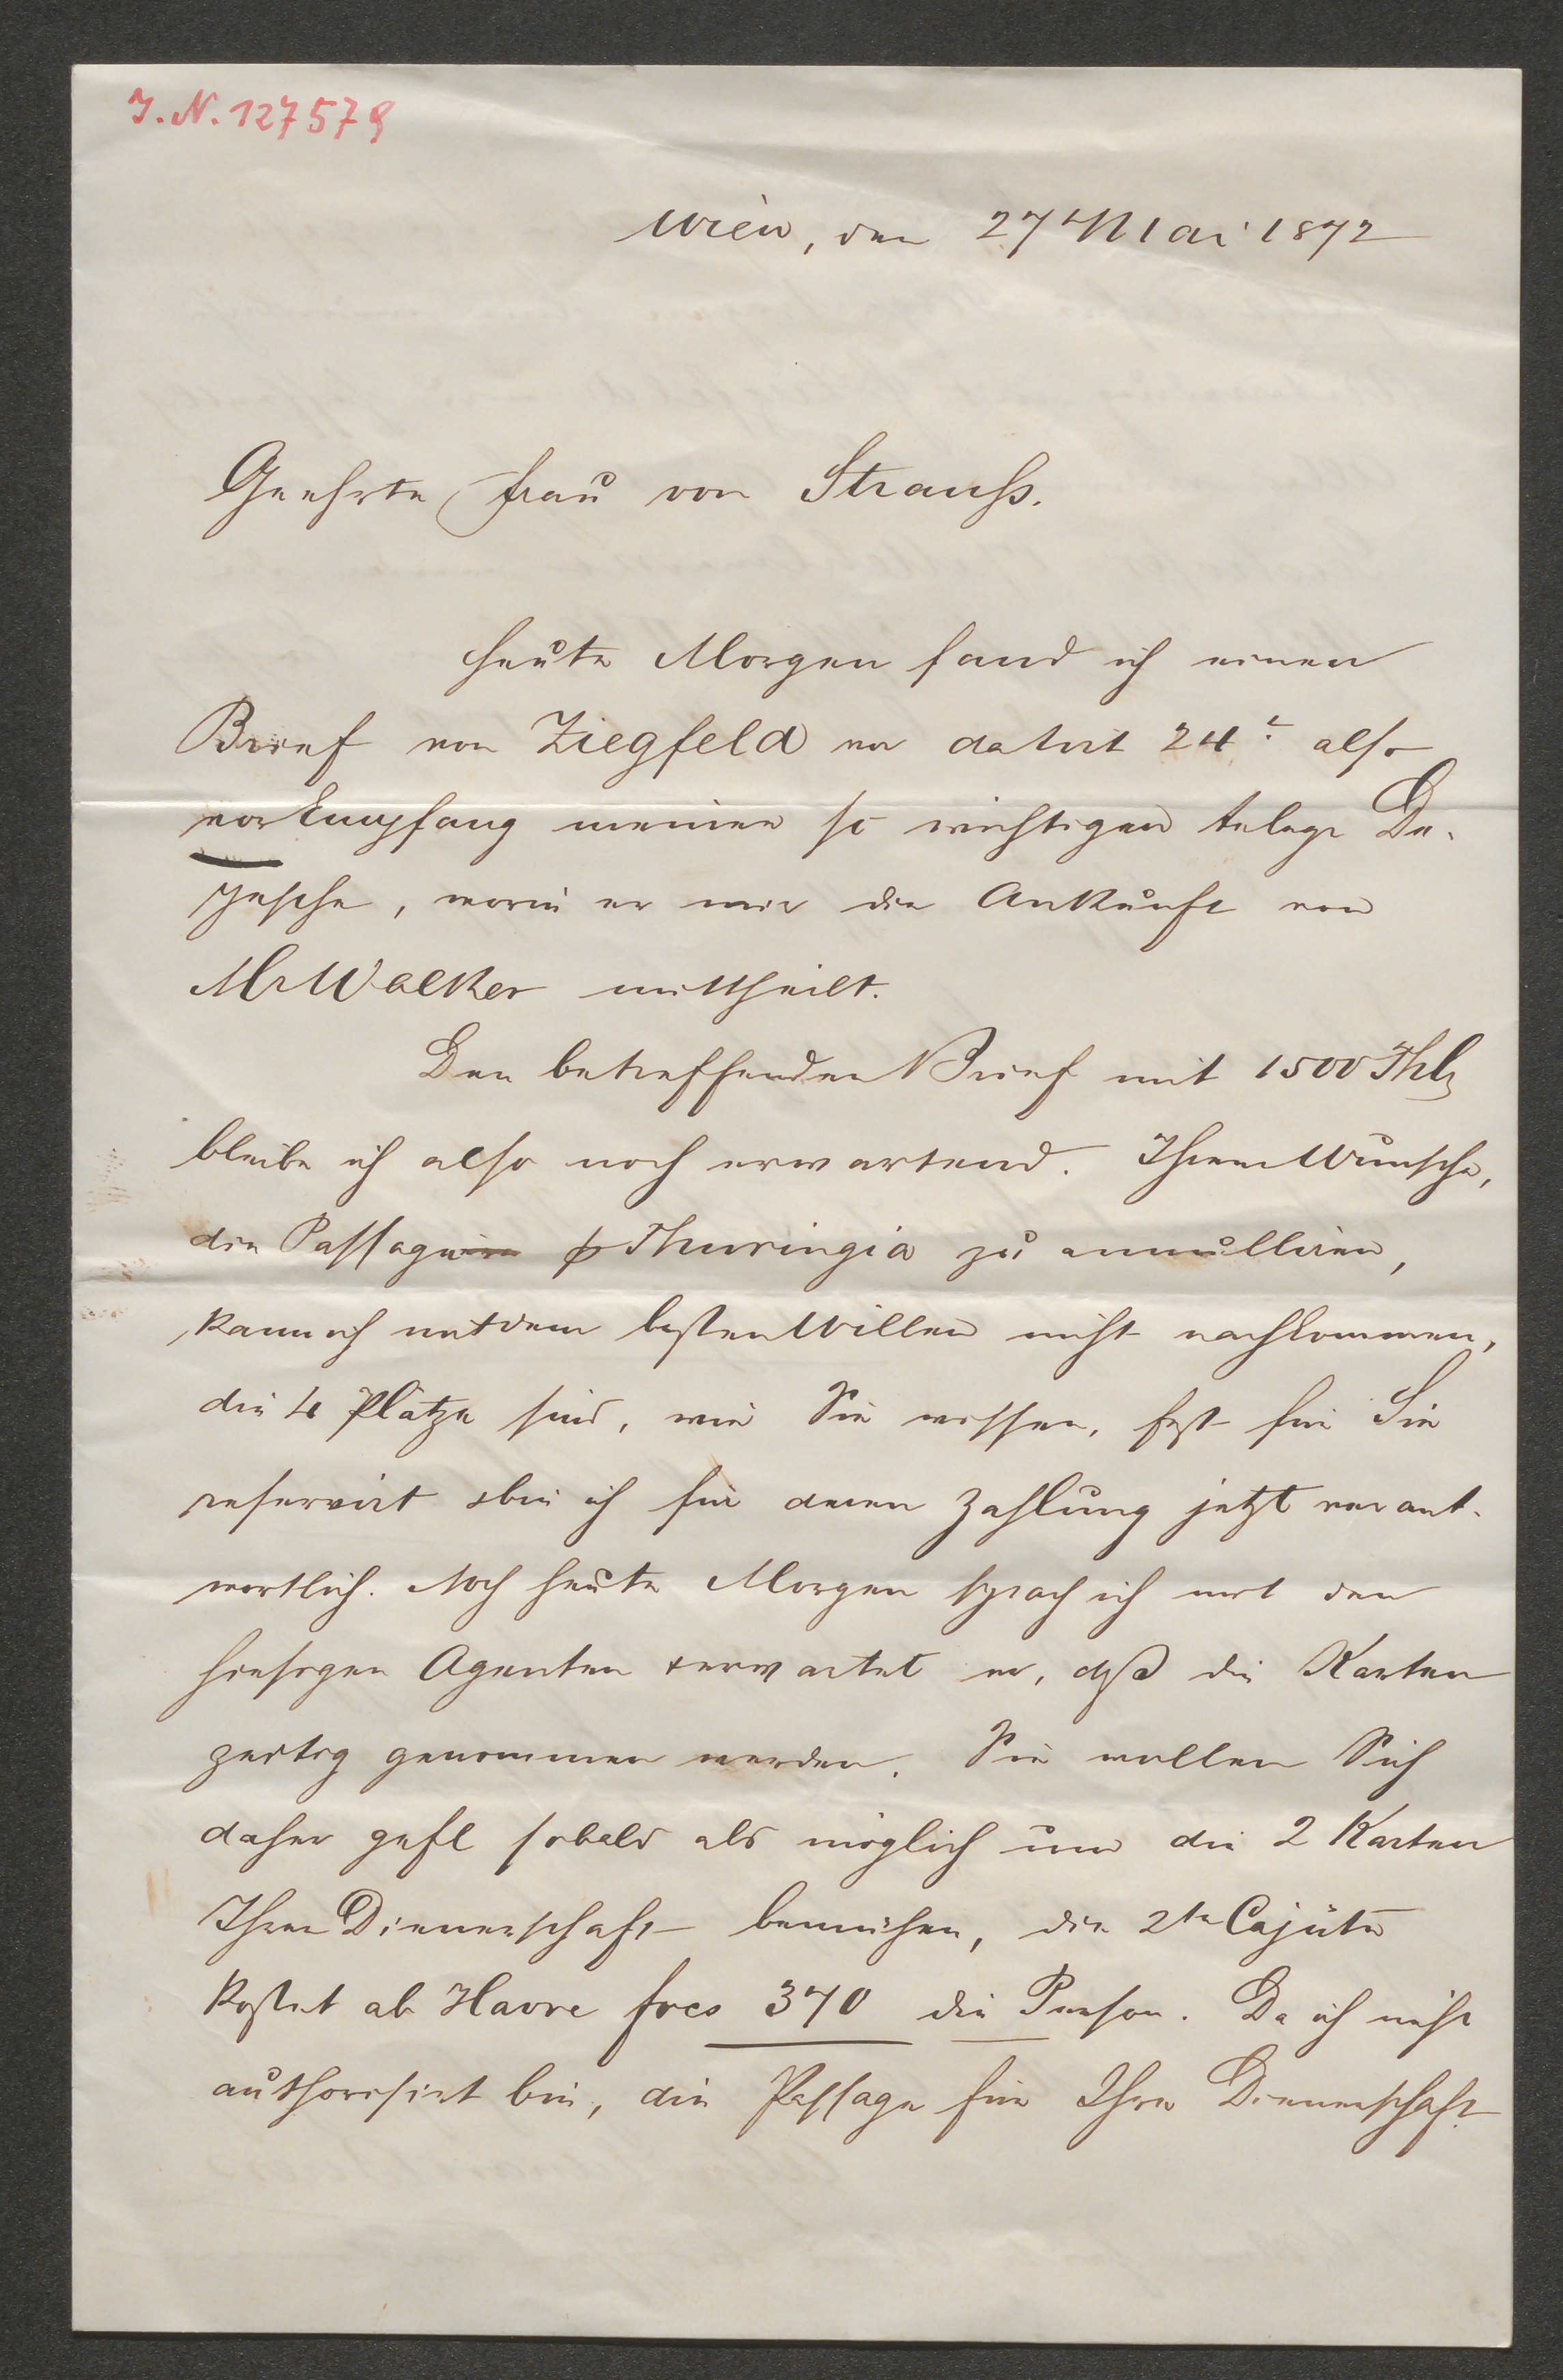 I. N. 127579
Wien, den 27t Mai 1872
Geehrte Frau von Strauß.
Heute Morgen fand ich einen
Brief von Ziegfeld vor datirt 24t. also
vor Empfang meiner so wichtigen telegr De-
pesche, worin er mir die Ankunft von
Mr Walker mittheilt.
Den betreffenden Brief mit 1500 Thlr
bleibe ich also noch erwartend. Ihrem Wunsche,
die Passage p Thuringia zu annulliren,
kann ich mit dem besten Willen nicht nachkommen,
die 4 Plätze sind, wie Sie wissen, fest für Sie
reservirt & bin ich für deren Zahlung jetzt verant-
wortlich. Noch heute Morgen sprach ich mit den
hiesigen Agenten & erwartet er, daß die Karten
zeitig genommen werden. Sie wollen Sich
daher gefl sobald als möglich um die 2 Karten
Ihrer Dienerschaft bemühen, die 2te Cajüte
kostet ab Havre frcs 370 die Person. Da ich nicht
authorisirt bin, die Passage für Ihre Dienerschaft